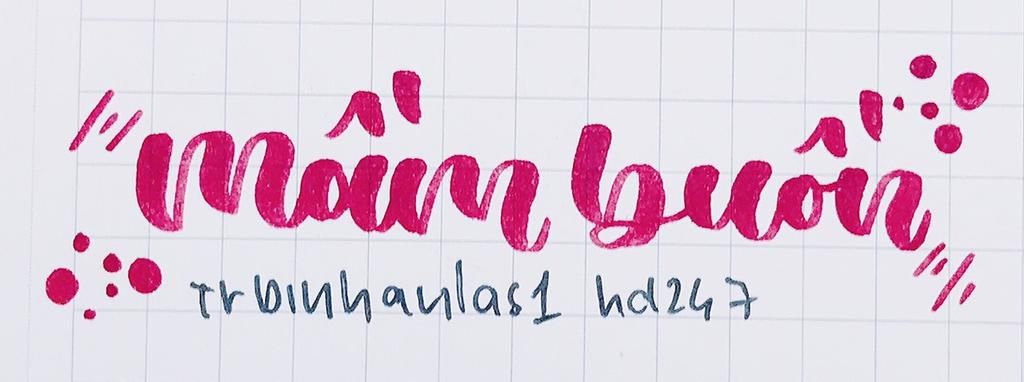 mầm buồn
trbinhanlas1 hd247